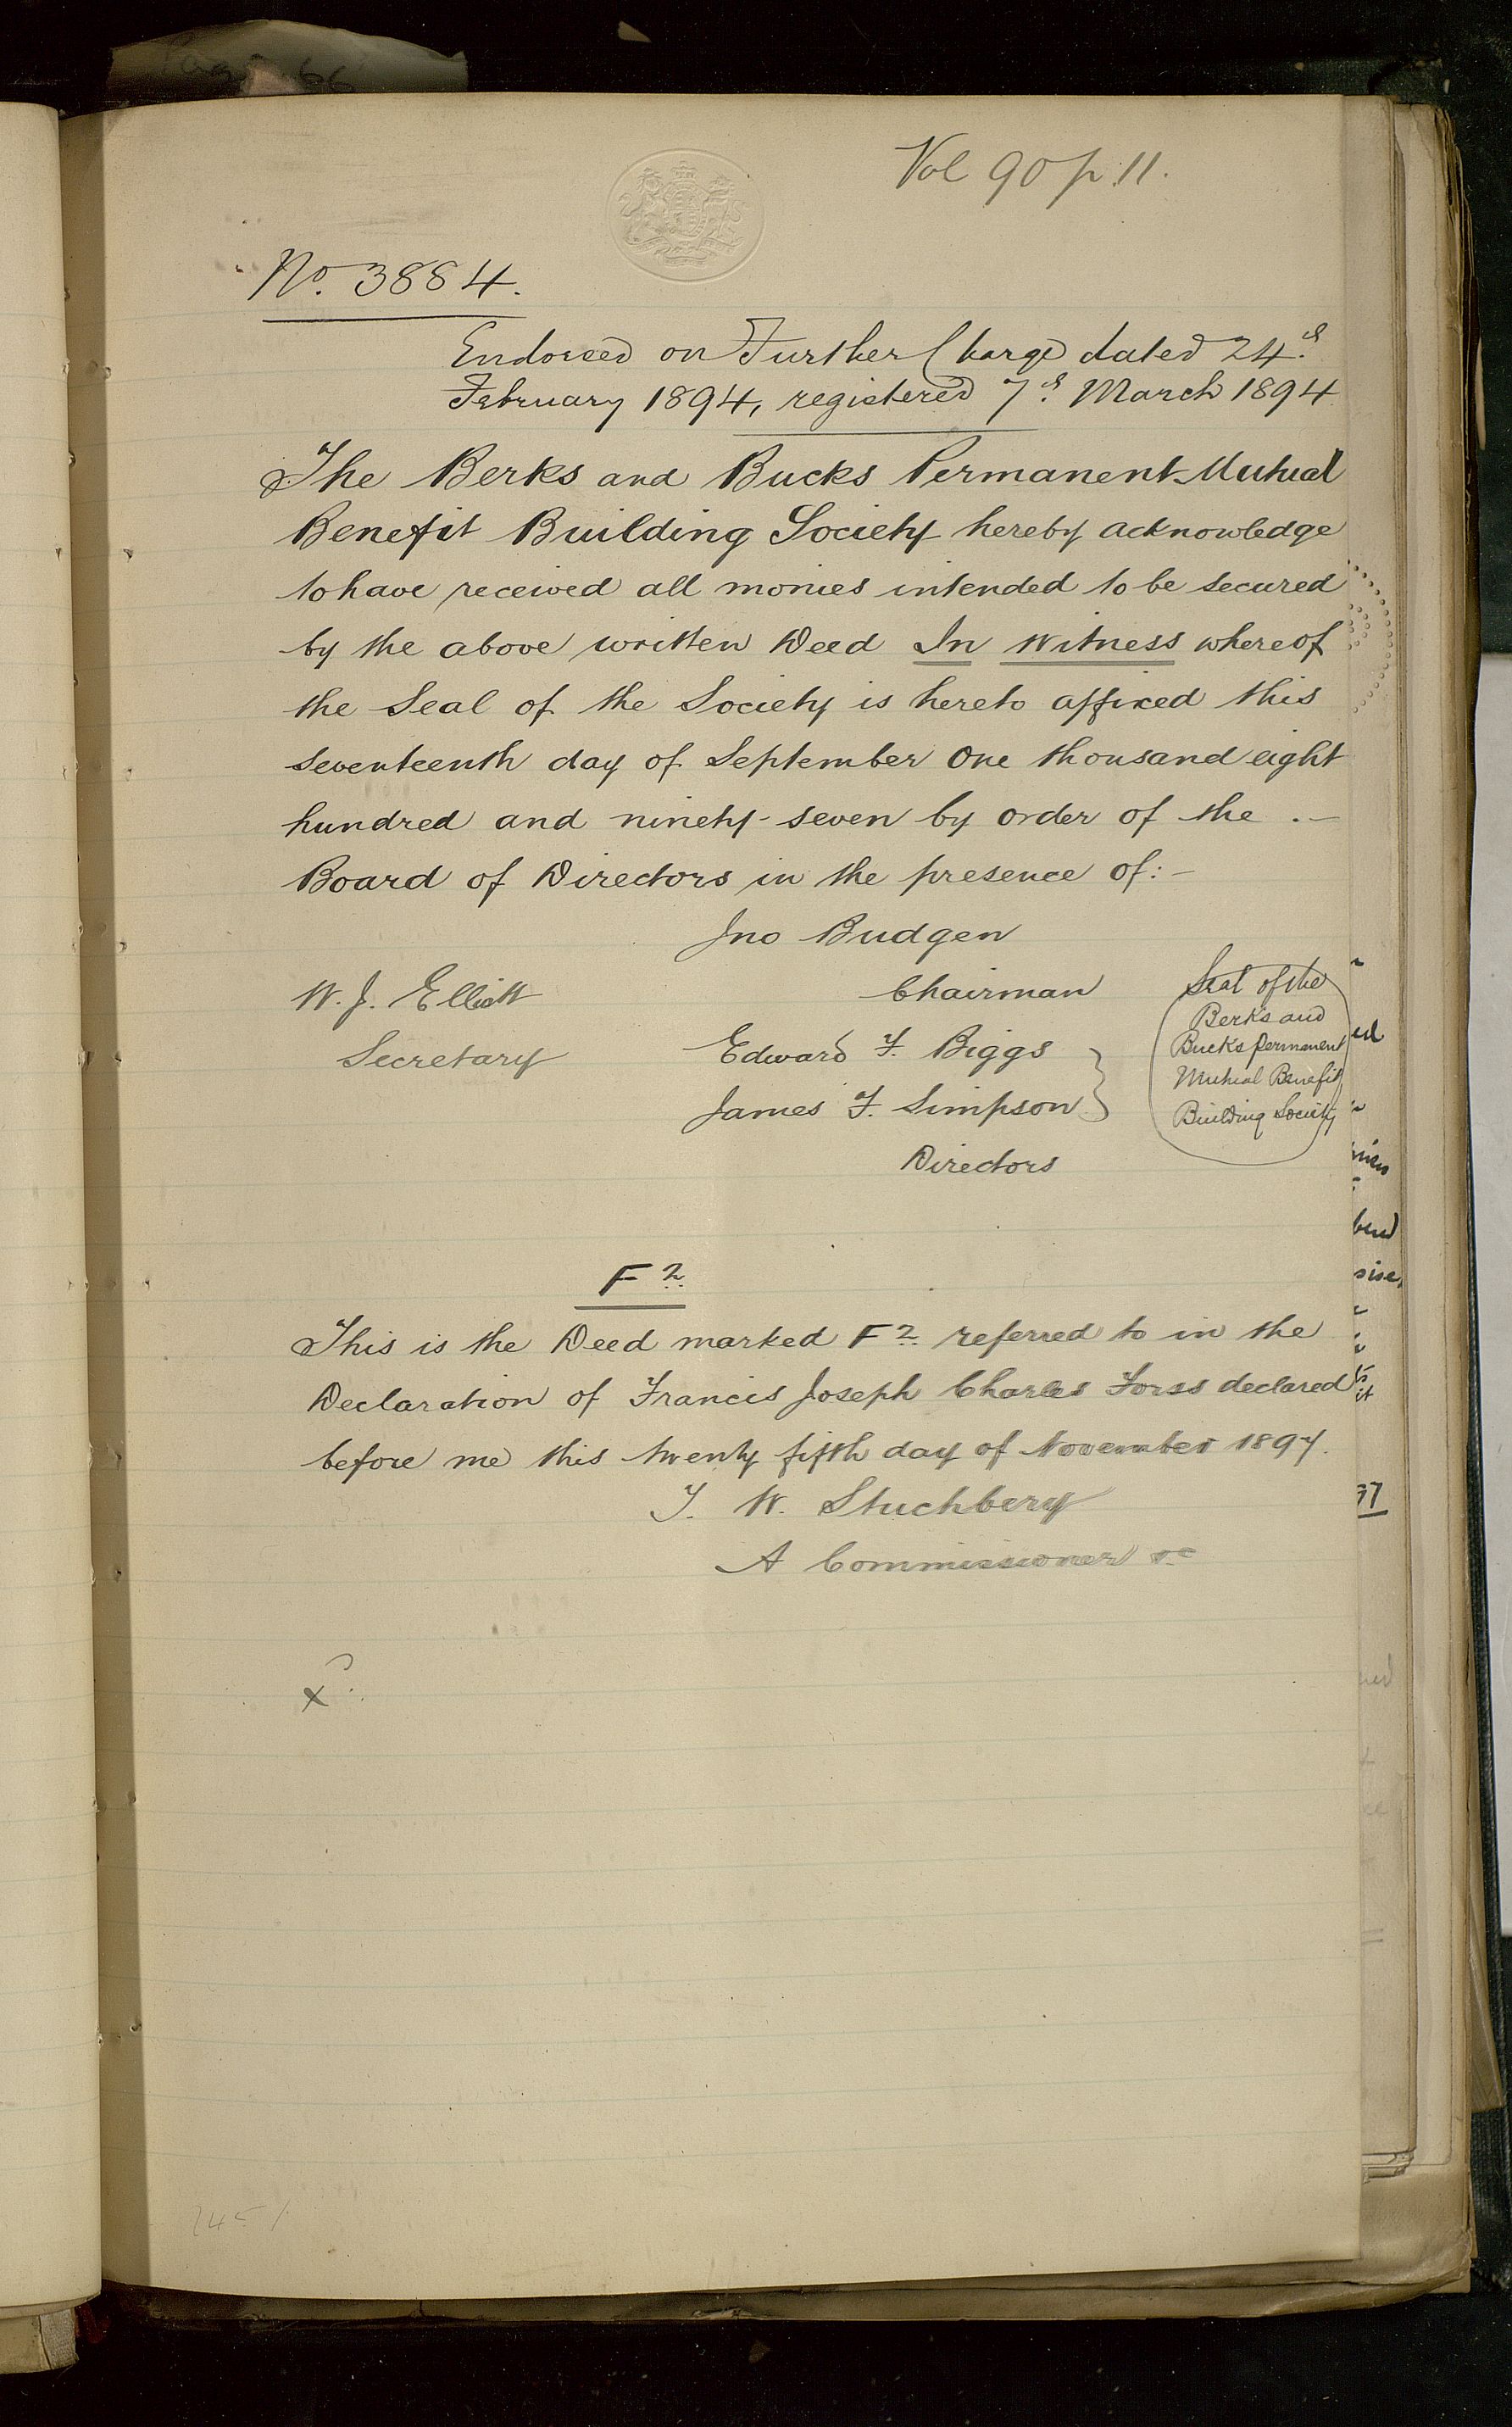 Vol 90 p. 11.
No. 3884.
Endorsed on Further Charge dated 24th
February 1894, registered 7th March 1894
The Berks and Bucks Permanent Mutual
Benefit Building Society hereby acknowledge
to have received all monies intended to be secured
by the above written Deed In Witness whereof
the Seal of the Society is hereto affixed this
seventeenth day of September One thousand eight
hundred and ninety-seven by order of the . -
Board of Directors in the presence of:-
Jno Budgen
Chairman
W. J. Elliott
Secretary
Edward F. Biggs
James F. Simpson
Directors
Seal of the
Berks and
Bucks Permanent
Mutual Benefit
Building Society
F 2.
This is the Deed marked F 2. referred to in the
Declaration of Francis Joseph Charles Forss declared
before me this twenty fifth day of November 1897.
T. W. Stuchbery
A Commissioner &c